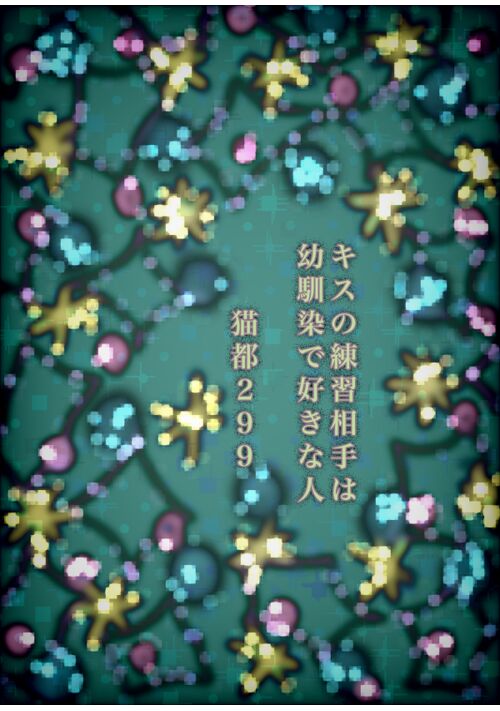 キスの練習相手は
幼馴染で好きな人
猫都２９９